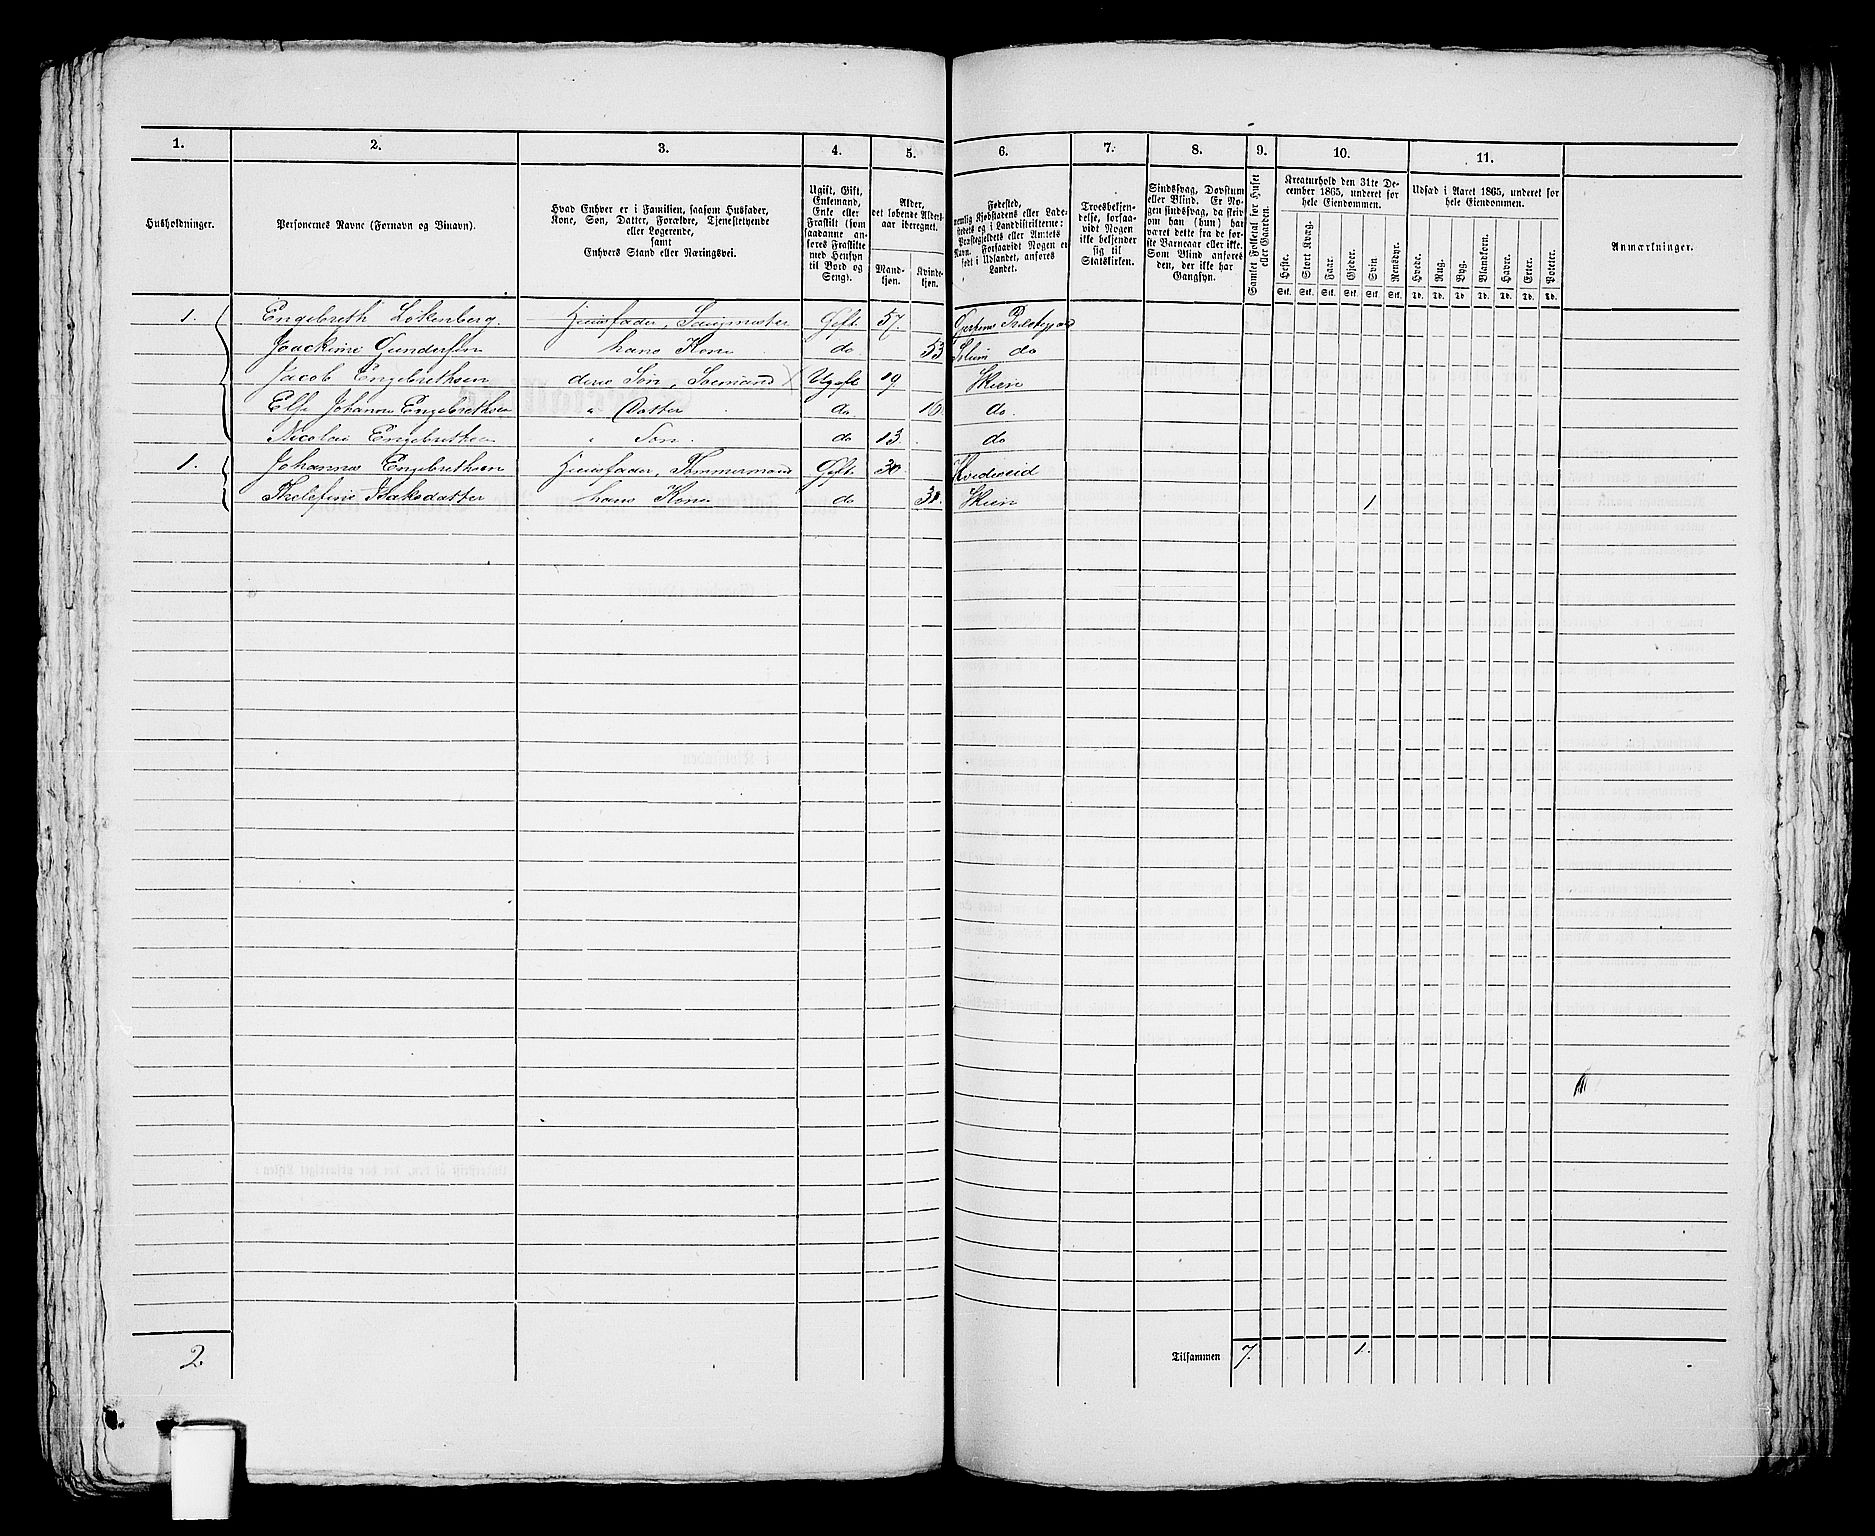 1. 2. 3. 4. 5. 6. 7. 8. 9. 10. 11.
Husholdninger.
Personernes Navne (Fornavn og Binavn).
Hvad Enhver er i Familien, saasom Husfader,
Kone, Søn, Datter, Forældre, Tjenestetyende
eller Logerende,
samt
Enhvers Stand eller Næringsvei.
Ugift, Gift,
Enkemand,
Enke eller
Fraskilt (som
saadanne an-
føres Fraskilte
med Hensyn
til Bord og
Seng).
Alder,
det løbende Alders-
aar iberegnet.
Mand-
kjøn.
Kvinde-
kjøn.
Fødested,
nemlig Kjøbstadens eller Lade-
stedets og i Landdistrikterne:
Præstegjeldets eller Amtets
Navn. Forsaavidt Nogen er
født i Udlandet, anføres
Landet.
Troesbekjen-
delse, forsaa-
vidt Nogen
ikke bekjender
sig til
Statskirken.
Sindssvag, Døvstum
eller Blind. Er No-
gen sindssvag, da skriv
om han (hun) har
været dette fra de før-
ste Barneaar eller ikke.
Som Blind anføres
den, der ikke har
Gangsyn.
Samlet Folketal for Huset
eller Gaarden.
Kreaturhold den 31te De-
cember 1865, underet for
hele Eiendommen.
Heste. Stort Kvæg. Faar. Gjeder. Svin. Rensdyr.
Stk. Stk. Stk. Stk. Stk. Stk.
Udsæd i Aaret 1865, underet for
hele Eiendommen.
Hvede. Rug. Byg. Blandkorn. Havre. Erter. Poteter.
Td. Td. Td. Td. Td. Td. Td.
Anmærkninger.
1. Engebreth Løkenberg. Huusfader, Saugmester Gift 57. Gjerpens Præstegjæld
Joackime Gundersen hans Kone do 53 Slum do
Jacob Engebrethsen deres Søn, Sømand Ugift 19 Skien
Else Johanne Engebrethsen " Datter do. 16. do.
Nicolai Engebrethsen " Søn. do 13. do
1. Johannes Engebrethsen Huusfader, Tømmermand Gift 30 Hvideseid
Isaksdatter hans Kone do Skien 1
2. Tilsammen 7. 1.